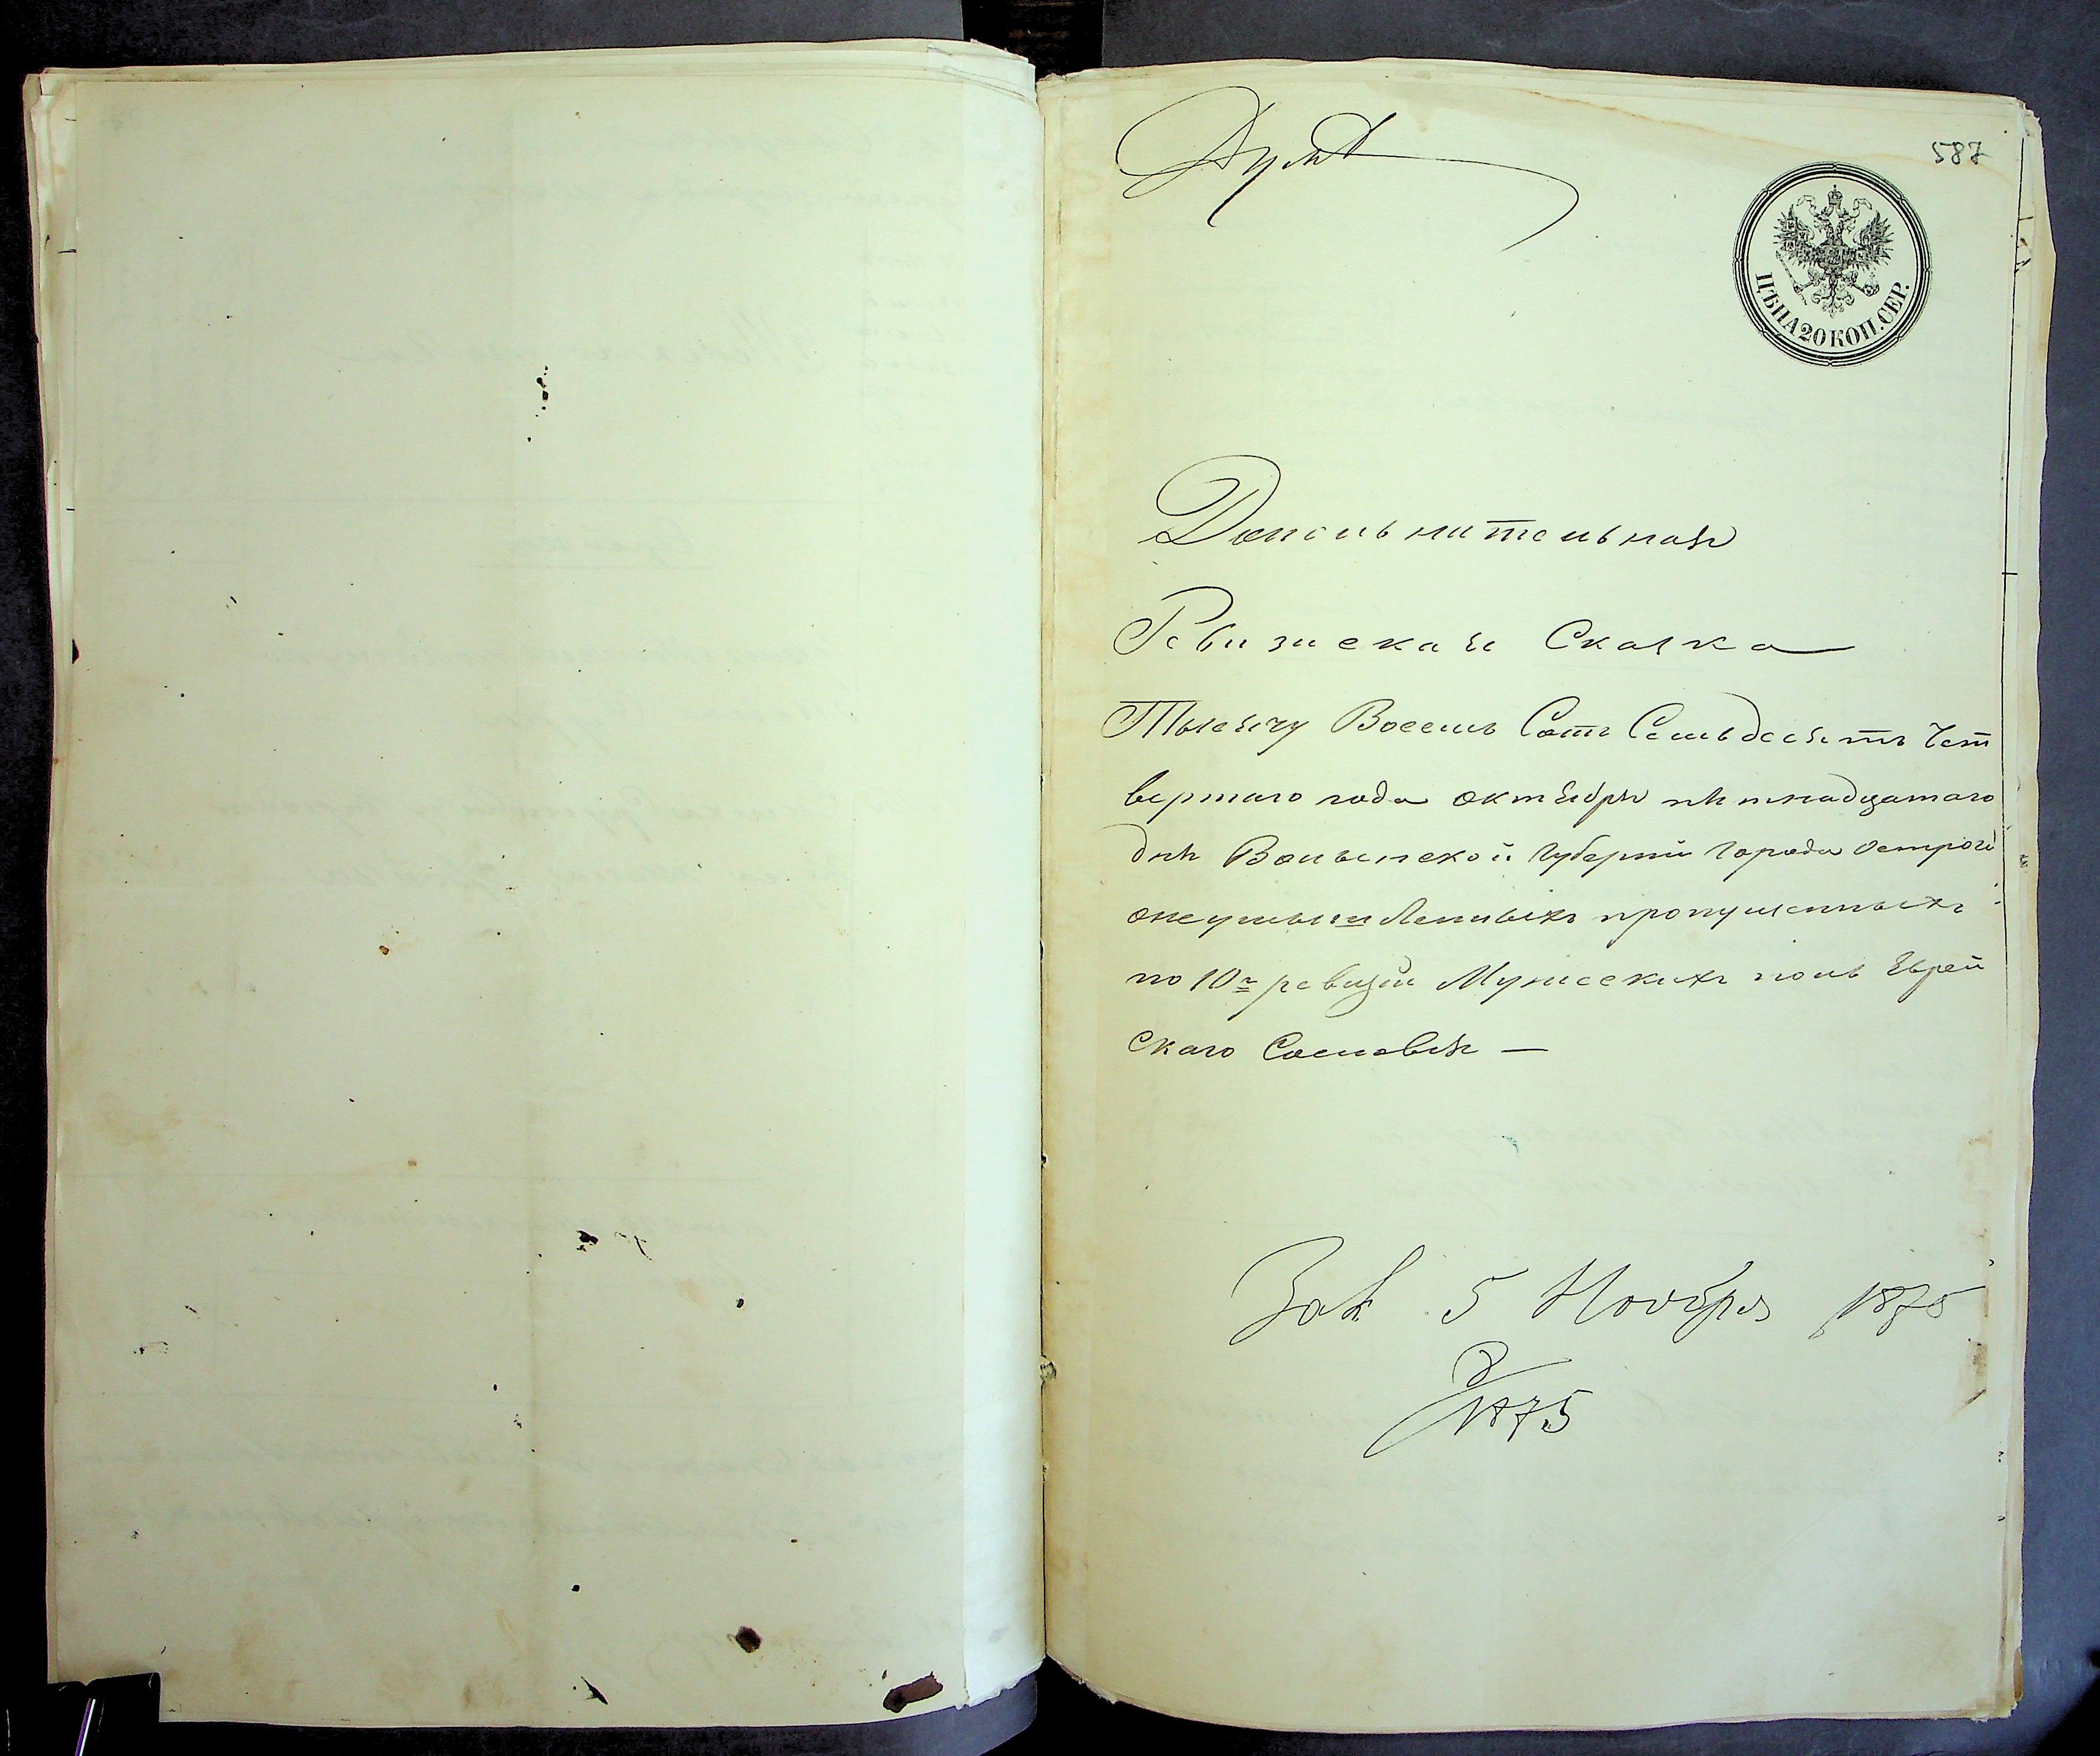 587
ЦѢНА 20 КОП. СЕР.
Дополнительная
Ревизская Сказка
Тысячу Восемь Сотъ Семьдесятъ Чет
вертаго года октября пятнадцатаго
дня Волынской Губерніи города Острога
пропущенныхъ
по 10й ревизіи Мужескихъ полъ Еврей
скаго Сословія —
5 Ноября 1875
1875